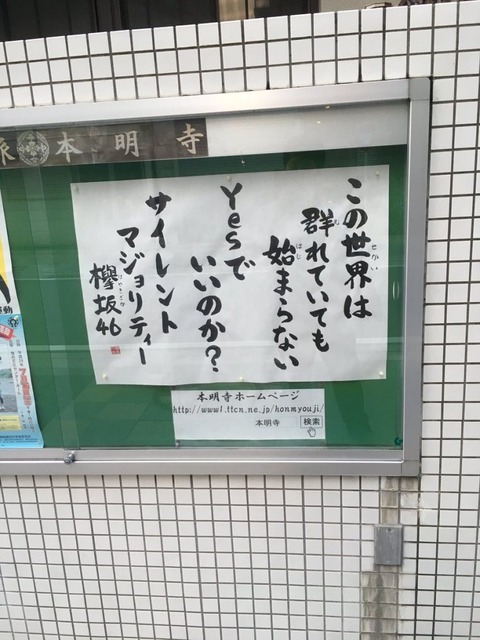 派 本明寺
この世界は
群れていても
始まらない
Yesで
いいのか?
サイレント
マジョリティー
欅坂46
せかい
む
はじ
けやきざか
本明寺ホームページ
http://www1.ttcn.ne.jp/honmyouji/
本明寺 検索